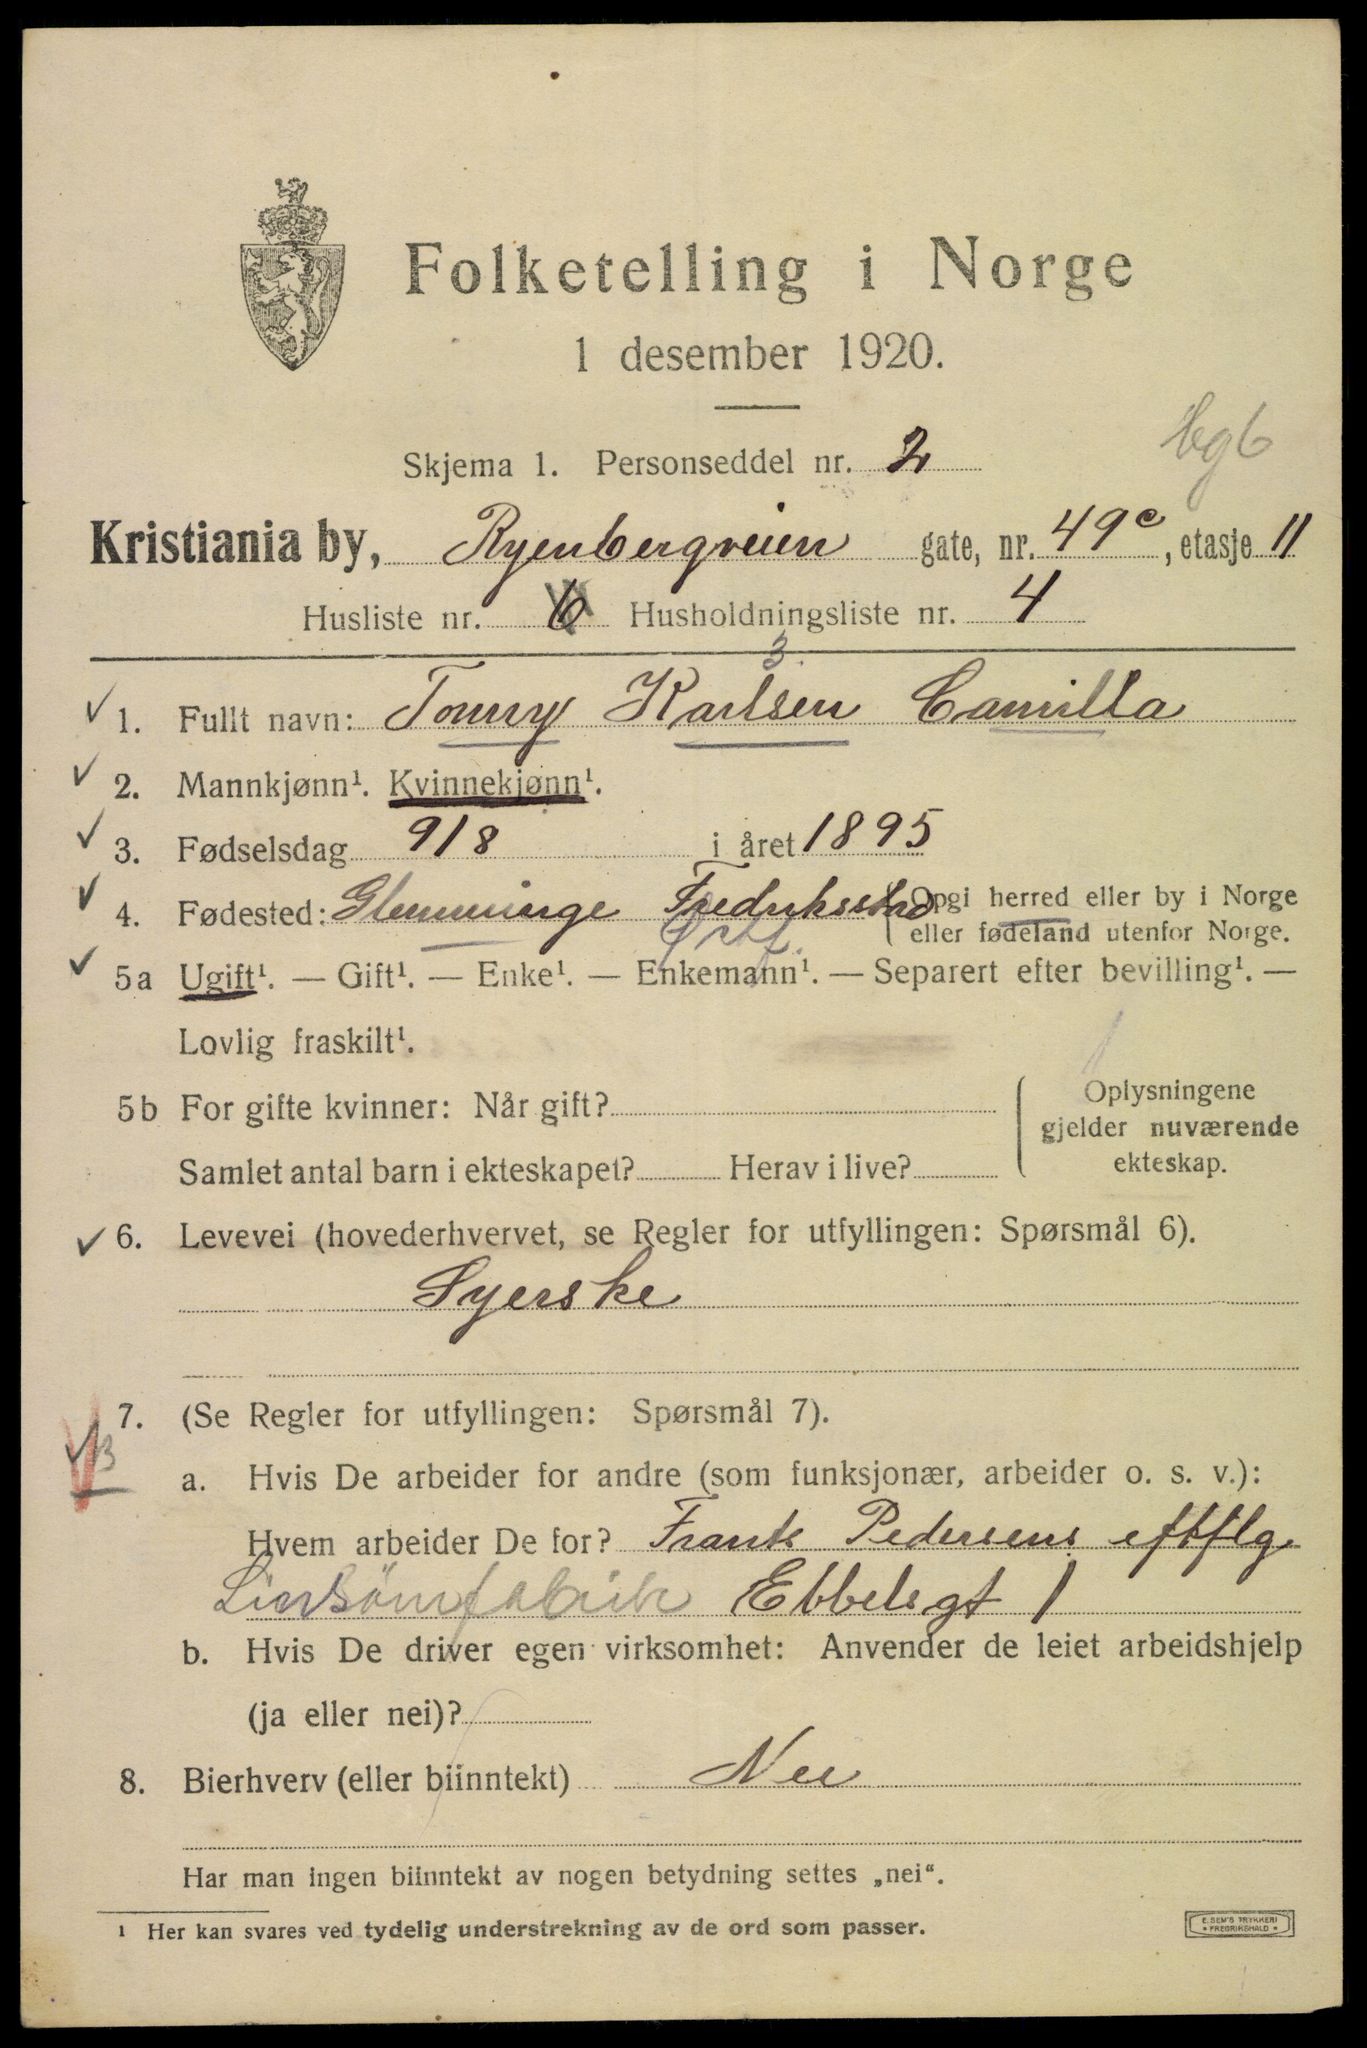 Folketelling i Norge
1 desember 1920.
Skjema 1. Personseddel nr. 2
bg6
Kristiania by, Ryenbergveien gate, nr. 49c, etasje 11
Husliste nr. 6 Husholdningsliste nr. 4
3.
1. Fullt navn: Tonny Karlsen Camilla
2. Mannkjønn¹. Kvinnekjønn¹.
3. Fødselsdag 9/8 i året 1895
4. Fødested: Glemminge Fredriksstad Opgi herred eller by i Norge
Østf. eller fødeland utenfor Norge.
5a Ugift¹. — Gift¹. — Enke¹. — Enkemann¹. — Separert efter bevilling¹. —
Lovlig fraskilt¹.
5b For gifte kvinner: Når gift? Oplysningene
gjelder nuværende
Samlet antal barn i ekteskapet? Herav i live? ekteskap.
6. Levevei (hovederhvervet, se Regler for utfyllingen: Spørsmål 6).
Syerske
7. (Se Regler for utfyllingen: Spørsmål 7).
B
a. Hvis De arbeider for andre (som funksjonær, arbeider o. s. v.):
Hvem arbeider De for? Frank Pedersens eftflg.
Linsömfabrik Ebbelsgt 1
b. Hvis De driver egen virksomhet: Anvender de leiet arbeidshjelp
(ja eller nei)?
8. Bierhverv (eller biinntekt) Nei
Har man ingen biinntekt av nogen betydning settes „nei“.
¹ Her kan svares ved tydelig understrekning av de ord som passer.
E. SEM'S TRYKKERI
* FREDRIKSHALD *